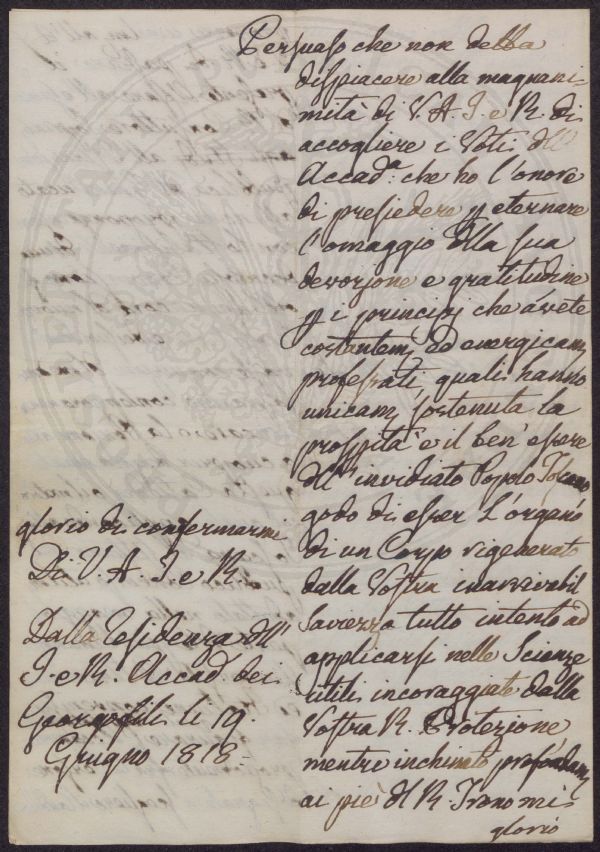 Persuaso che non debba
dispiacere alla magnani-
mità di V. A. I. e R. di
accogliere i Voti dell'
Accad.a che ho l'onore
di presiedere p eternare
l'omaggio della sua
devozione e gratitudine
p i principj che avete
costantem, ed energicam,
professati, quali hanno
unicam, sostenuta la
prosp̃ità e il ben' essere
dell' invidiato Popolo Toscano
godo di esser l'organo
di un Corpo rigenerato
dalla Vostra inarrivabil
Saviezza tutto intento ad
applicarsi nelle Scienze
utili incoraggiate dalla
Vostra R. Protezione
mentre inchinato profondam,
ai piè del R. Trono mi
glorio
glorio di confermarmi
Di V. A. I. e R.
Dalla Residenza dell'
I. e R. Accad. dei
Georgofili li 19.
Giugno 1818-